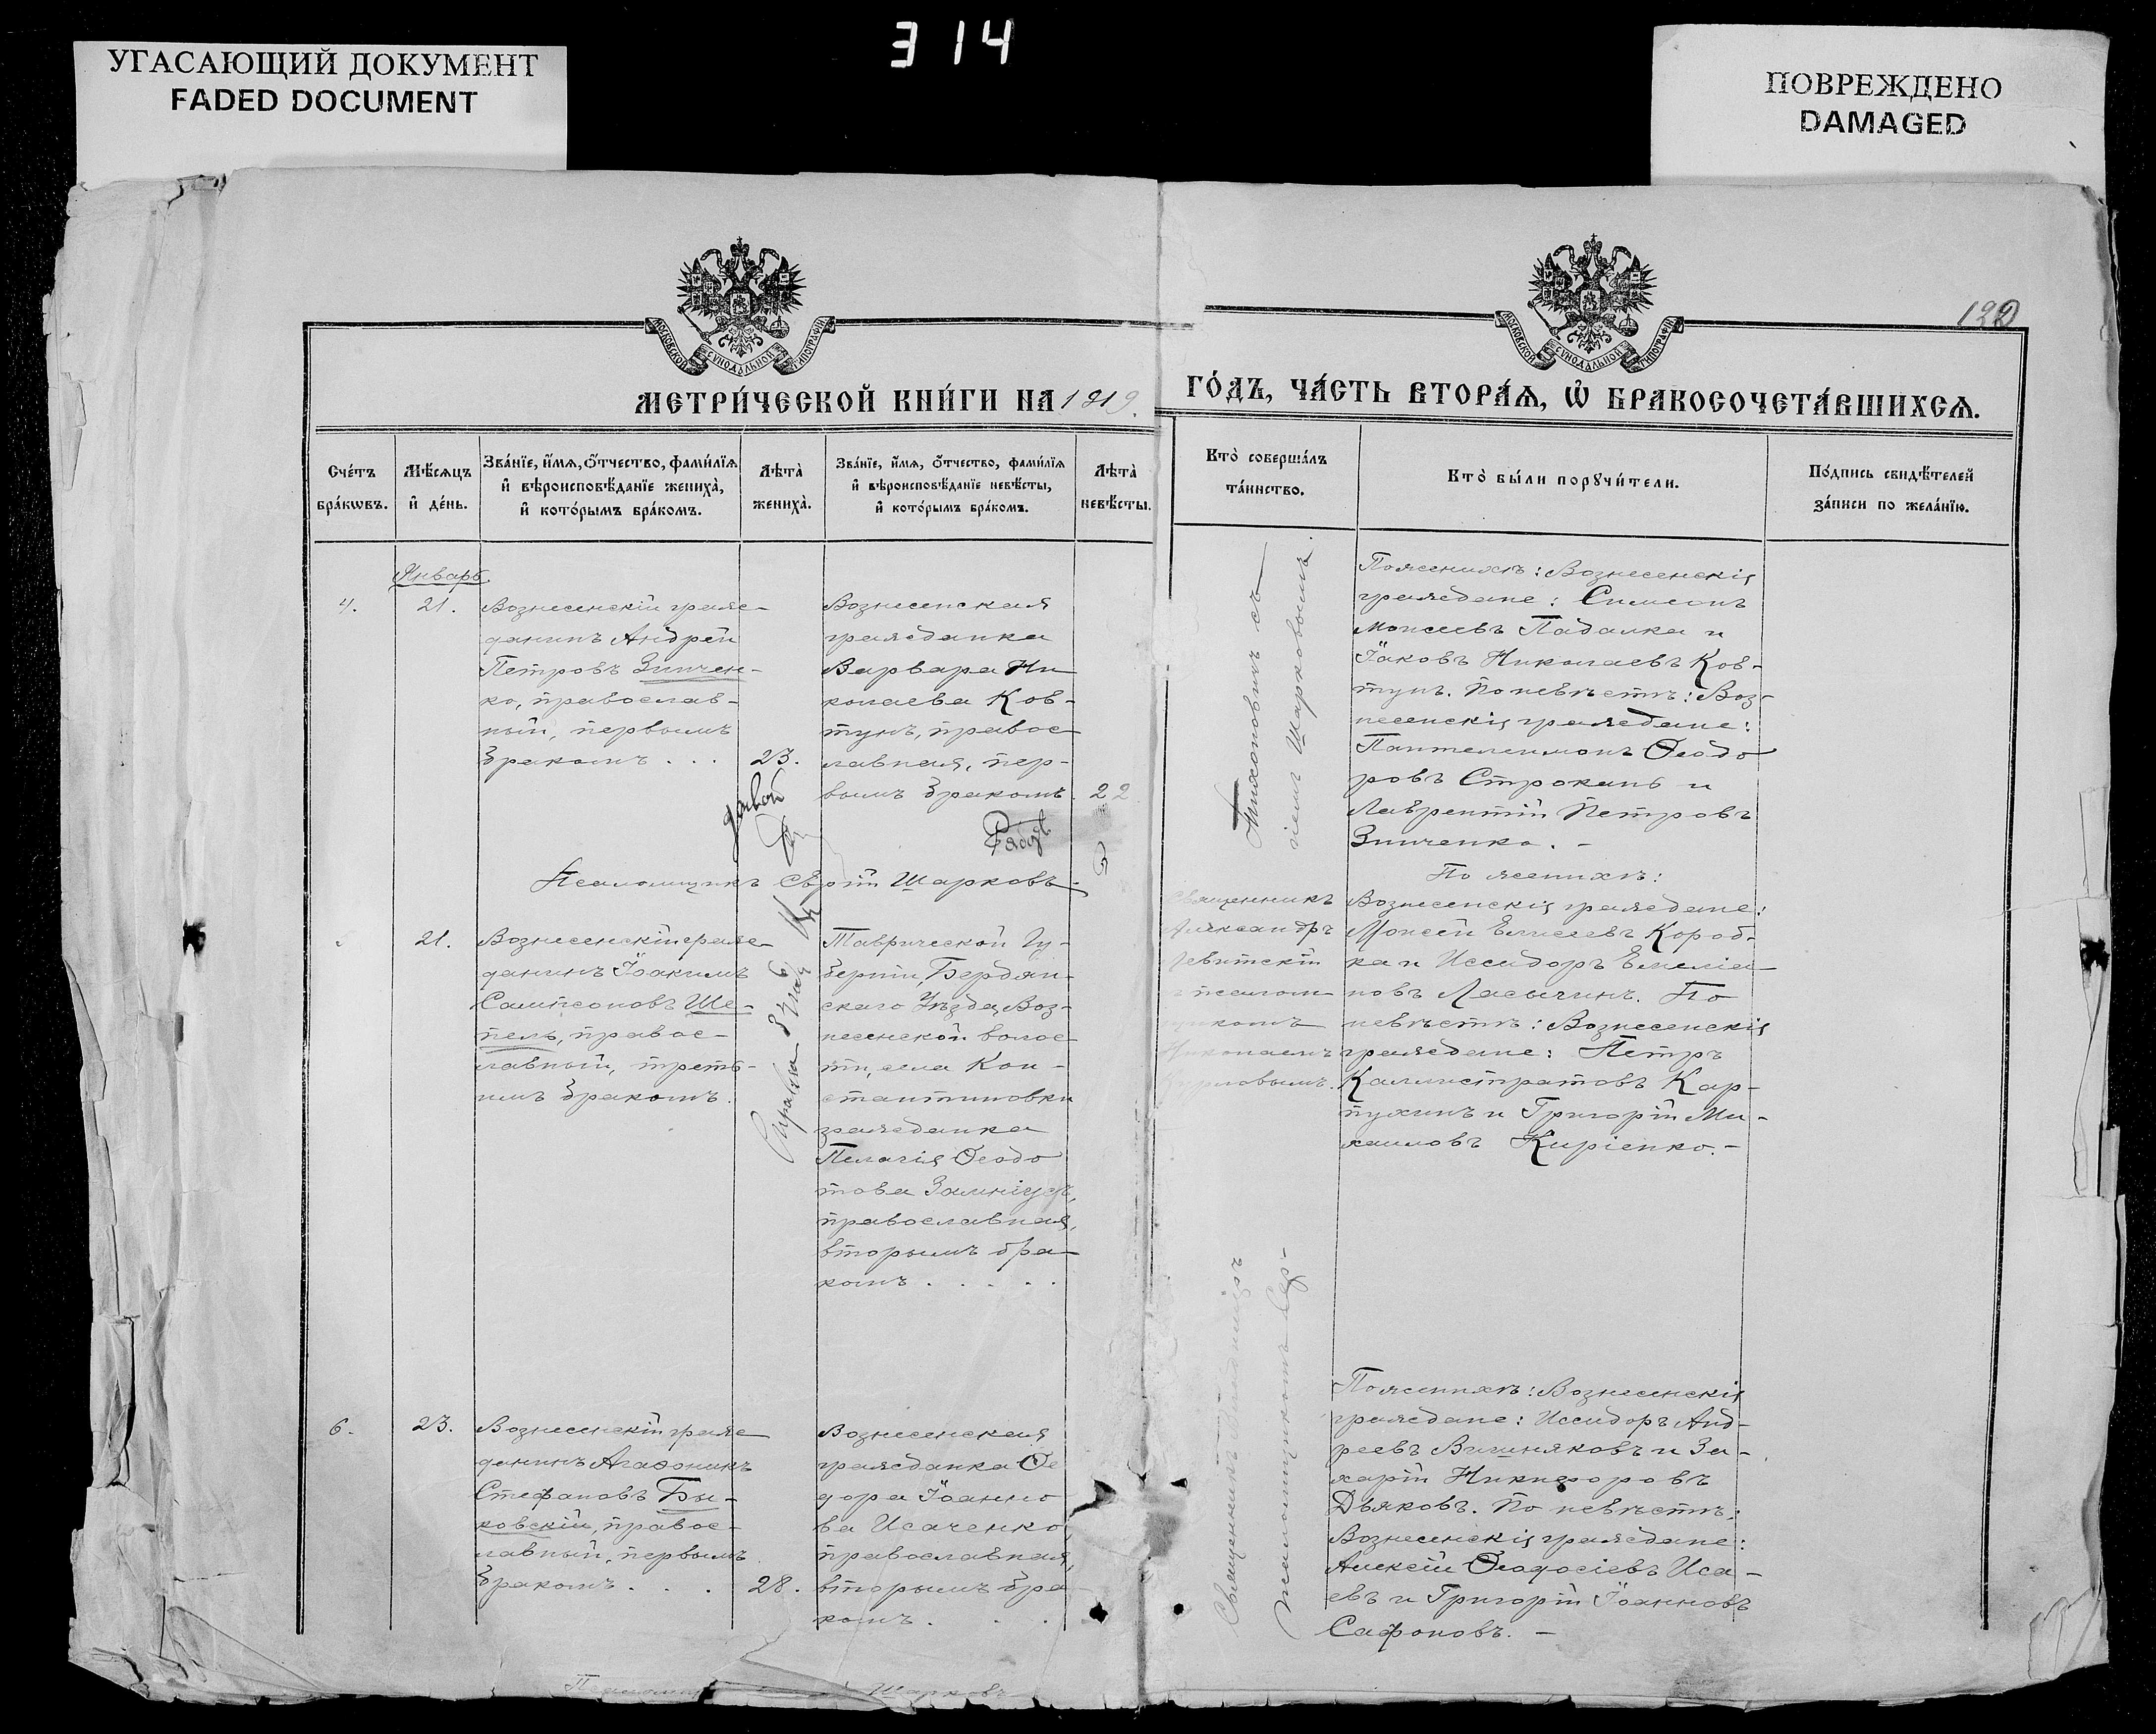 314
УГАСАЮЩИЙ ДОКУМЕНТ
FADED DOCUMENT
ПОВРЕЖДЕНО
DAMAGED
МОСКОВСКОЙ СѴНОДАЛЬНОЙ ТИПОГРАФІИ
МОСКОВСКОЙ СѴНОДАЛЬНОЙ ТИПОГРАФІИ
МЕТРИ́ЧЕСКОЙ КНИ́ГИ НА 1919.
ГО́ДЪ, ЧА́СТЬ ВТОРА́Ѧ, Ѽ БРАКОСОЧЕТА́ВШИХСѦ.
Сче́тъ
бра́кѡвъ.
Мѣ́сяцъ
и҆ де́нь.
Зва́нїе, и҆́мѧ, ѻ҆́тчество, фами́лїѧ
и҆ вѣроисповѣ́данїе жениха̀,
и҆ кото́рымъ бра́комъ.
Лѣ́та̀
жениха̀.
Зва́нїе, и҆́мѧ, ѻ҆́тчество, фами́лїѧ
и҆ вѣроисповѣ́данїе невѣ́сты,
и҆ кото́рымъ бра́комъ.
Лѣ́та̀
невѣ́сты.
Кто̀ соверша́лъ
та́инство.
Кто̀ бы́ли порꙋчи́тели.
По́дпись свидѣ́телей
за́писи по жела́нїю.
Январь.
4.
21.
Вознесенскій граж-
данинъ Андрей
Петровъ Зинчен-
ко, православ-
ный, первымъ
бракомъ . . .
23.
Вознесенская
гражданка
Варвара Ни
колаева Ков-
тунъ, правос
лавная, пер-
вымъ бракомъ.
22
Тихоновичъ съ
Шарковымъ.
По женихѣ: Вознесенскія
граждане: Симеонъ
Моисеевъ Падалка и
Іаковъ Николаевъ Ков-
тунъ. По невѣстѣ: Воз-
несенскія граждане:
Пантелеимонъ Ѳеодо
ровъ Строкань и
Лаврентій Петровъ
Зинченко. -
Псаломщикъ Сергій Шарковъ.
21.
Вознесенскій граж-
данинъ Іоакимъ
Сампсоновъ Ше-
пель, правос-
лавный, треть-
имъ бракомъ.
Таврической Гу-
берніи, Бердян-
скаго Уѣзда, Воз-
несенской волос
ти, села Кон-
стантиновки
гражданка
Пелагія Ѳеодо
това
православная,
вторымъ бра-
комъ . . . . .
Священникъ
Александръ
Левитскій
Николаемъ
По женихѣ:
Вознесенскія граждане:
Моисей Елисеевъ Короб-
ка и Исидоръ Емеліа-
новъ Ласычинъ. По
невѣстѣ: Вознесенскія
граждане: Петръ
Каллистратовъ Кар-
пухинъ и Григорій Ми-
хаиловъ Киріенко. -
6.
23.
Вознесенскій граж
данинъ Агаѳоникъ
Стефановъ Бы-
ковскій, правос-
лавный, первымъ
бракомъ . . .
28.
Вознесенская
гражданка Ѳе
дора Іоанно
ва Исаченко
православная,
вторымъ бра
комъ . . .
Священникъ
псаломщикомъ Сер-
По женихѣ: Вознесенскія
граждане: Исидоръ Анд-
реевъ Вишняковъ и За-
харій Никифоровъ
Дьяковъ. По невѣстѣ:
Вознесенскія граждане:
Алексій Ѳеодосіевъ Иса-
евъ и Григорій Іоанновъ
Сафоновъ. -
Шарковъ